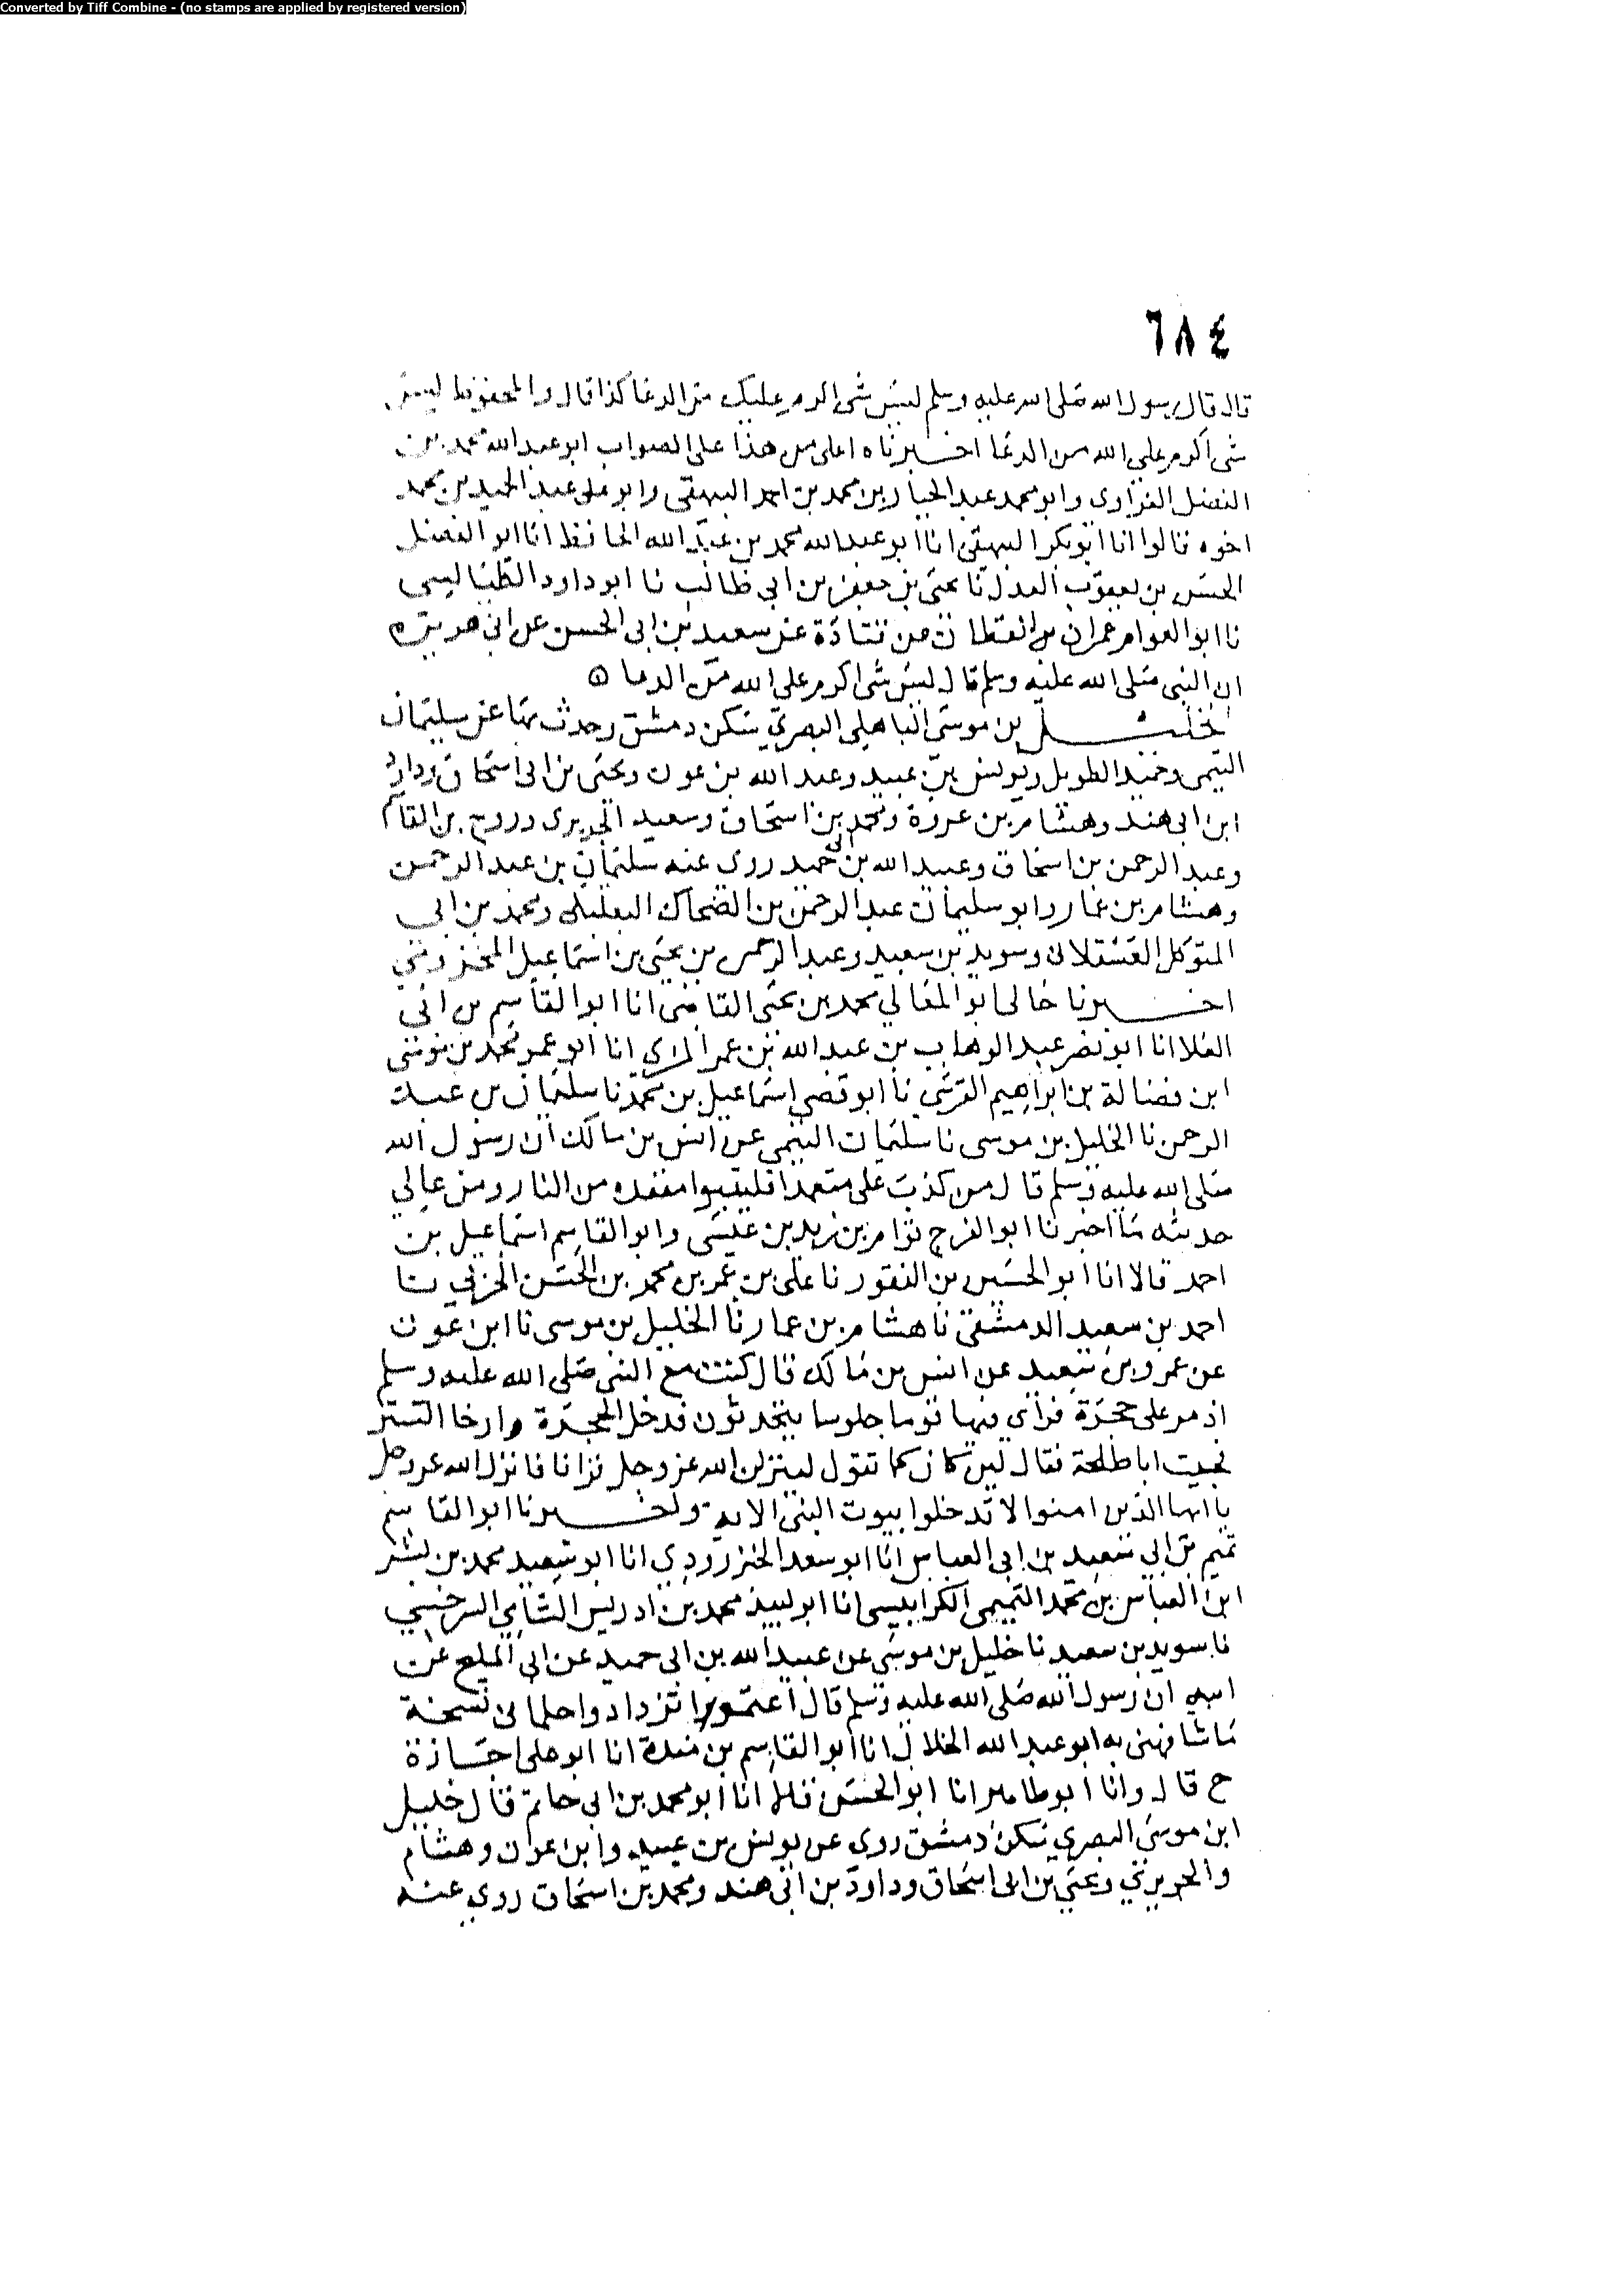 Converted by Tiff Combine - (no stamps are applied by registered version)
٦٨٤
قال قال رسول الله صلى الله عليه وسلم ليس شى اكرم عليك من الدعا كذا قال والمحفوظ ليس
شى اكرم على الله من الدعا اخبرناه اعلى من هذا على الصواب ابو عبد الله محمد بن
الفضل الفراوى وابو محمد عبد الجبار بن محمد بن احمد البيهقى وابو على عبد الحميد بن محمد
اخوه قالوا انا ابو بكر البيهقى انا ابو عبد الله محمد بن عبد الله الحافظ انا ابو الفضل
الحسن بن يعقوب العدل نا يحيى بن جعفر بن ابي طالب نا ابو داود الطيالسى
نا ابو العوام عمران القطان عن قتادة عن سعيد بن ابى الحسن عن ابى هريرة
ان النبى صلى الله عليه وسلم قال ليس شى اكرم على الله من الدعا ه
الخليل بن موسى الباهلى البصري سكن دمشق وحدث بها عن سليمان
التيمى وحميد الطويل ويونس بن عبيد وعبد الله بن عون ويحيى بن ابى اسحاق وداود
ابن ابى هند وهشام بن عروة ومحمد بن اسحاق وسعيد الجريرى وروح بن القاسم
وعبد الرحمن بن اسحاق وعبيد الله بن ابى حميد روى عنه سليمان بن عبد الرحمن
وهشام بن عمار وابو سليمان عبد الرحمن بن الضحاك البعلبكى ومحمد بن ابي
المتوكل العسقلانى وسويد بن سعيد وعبد الرحمن بن يحيى بن اسماعيل المخزومي
اخبرنا خالى ابو المعالي محمد بن يحيى القاضى انا ابو القاسم بن ابى
العلا انا ابو نصر عبد الوهاب بن عبد الله بن عمر المري انا ابو عمر محمد بن موسى
ابن فضالة بن ابراهيم القرشي نا ابو قصي اسماعيل بن محمد نا سليمان بن عبد
الرحمن نا الخليل بن موسى نا سليمان التيمى عن انس بن مالك ان رسول الله
صلى الله عليه وسلم قال من كذب على متعمدا فليتبوا مقعده من النار ومن عالي
حديثه ما اخبرنا ابو الفرج قوام بن زيد بن عيسى وابو القاسم اسماعيل بن
احمد قالا انا ابو الحسين بن النقور نا على بن عمر بن محمد بن الحسن الحربي نا
احمد بن سعيد الدمشقى نا هشام بن عمار نا الخليل بن موسى نا ابن عون
عن عمرو بن سعيد عن انس بن مالك قال كنت مع النبى صلى الله عليه وسلم
اذ مر على حجرة فراى فيها قوما جلوسا يتحدثون فدخل الحجرة وارخا الستر
فجيت ابا طلحة فقال لين كان كما تقول لينزلن الله عز وجل قرانا فانزل الله عز وجل
يا ايها الذين امنوا لا تدخلوا بيوت النبى الاية واخبرنا ابو القاسم
تميم بن ابي سعيد بن ابى العباس انا ابو سعد الخنزرودي انا ابو سعيد محمد بن بشر
ابن العباس بن محمد التميمى الكرابيسى انا ابو لبيد محمد بن ادريس الشامي السرخسي
نا سويد بن سعيد نا خليل بن موسى عن عبيد الله بن ابى حميد عن ابى المليح عن
ابيه ان رسول الله صلى الله عليه وسلم قال اعتموا تزدادوا حلما فى نسخة
ما شافهنى به ابو عبد الله الخلال انا ابو القاسم بن مندة انا ابو على اجازة
ح قال وانا ابو طاهر انا ابو الحسن قالا انا ابو محمد بن ابى حاتم قال خليل
ابن موسى البصري سكن دمشق روى عن يونس بن عبيد وابن عون وهشام
والجريري ويحيى بن ابى اسحاق وداود بن ابى هند ومحمد بن اسحاق روى عنه